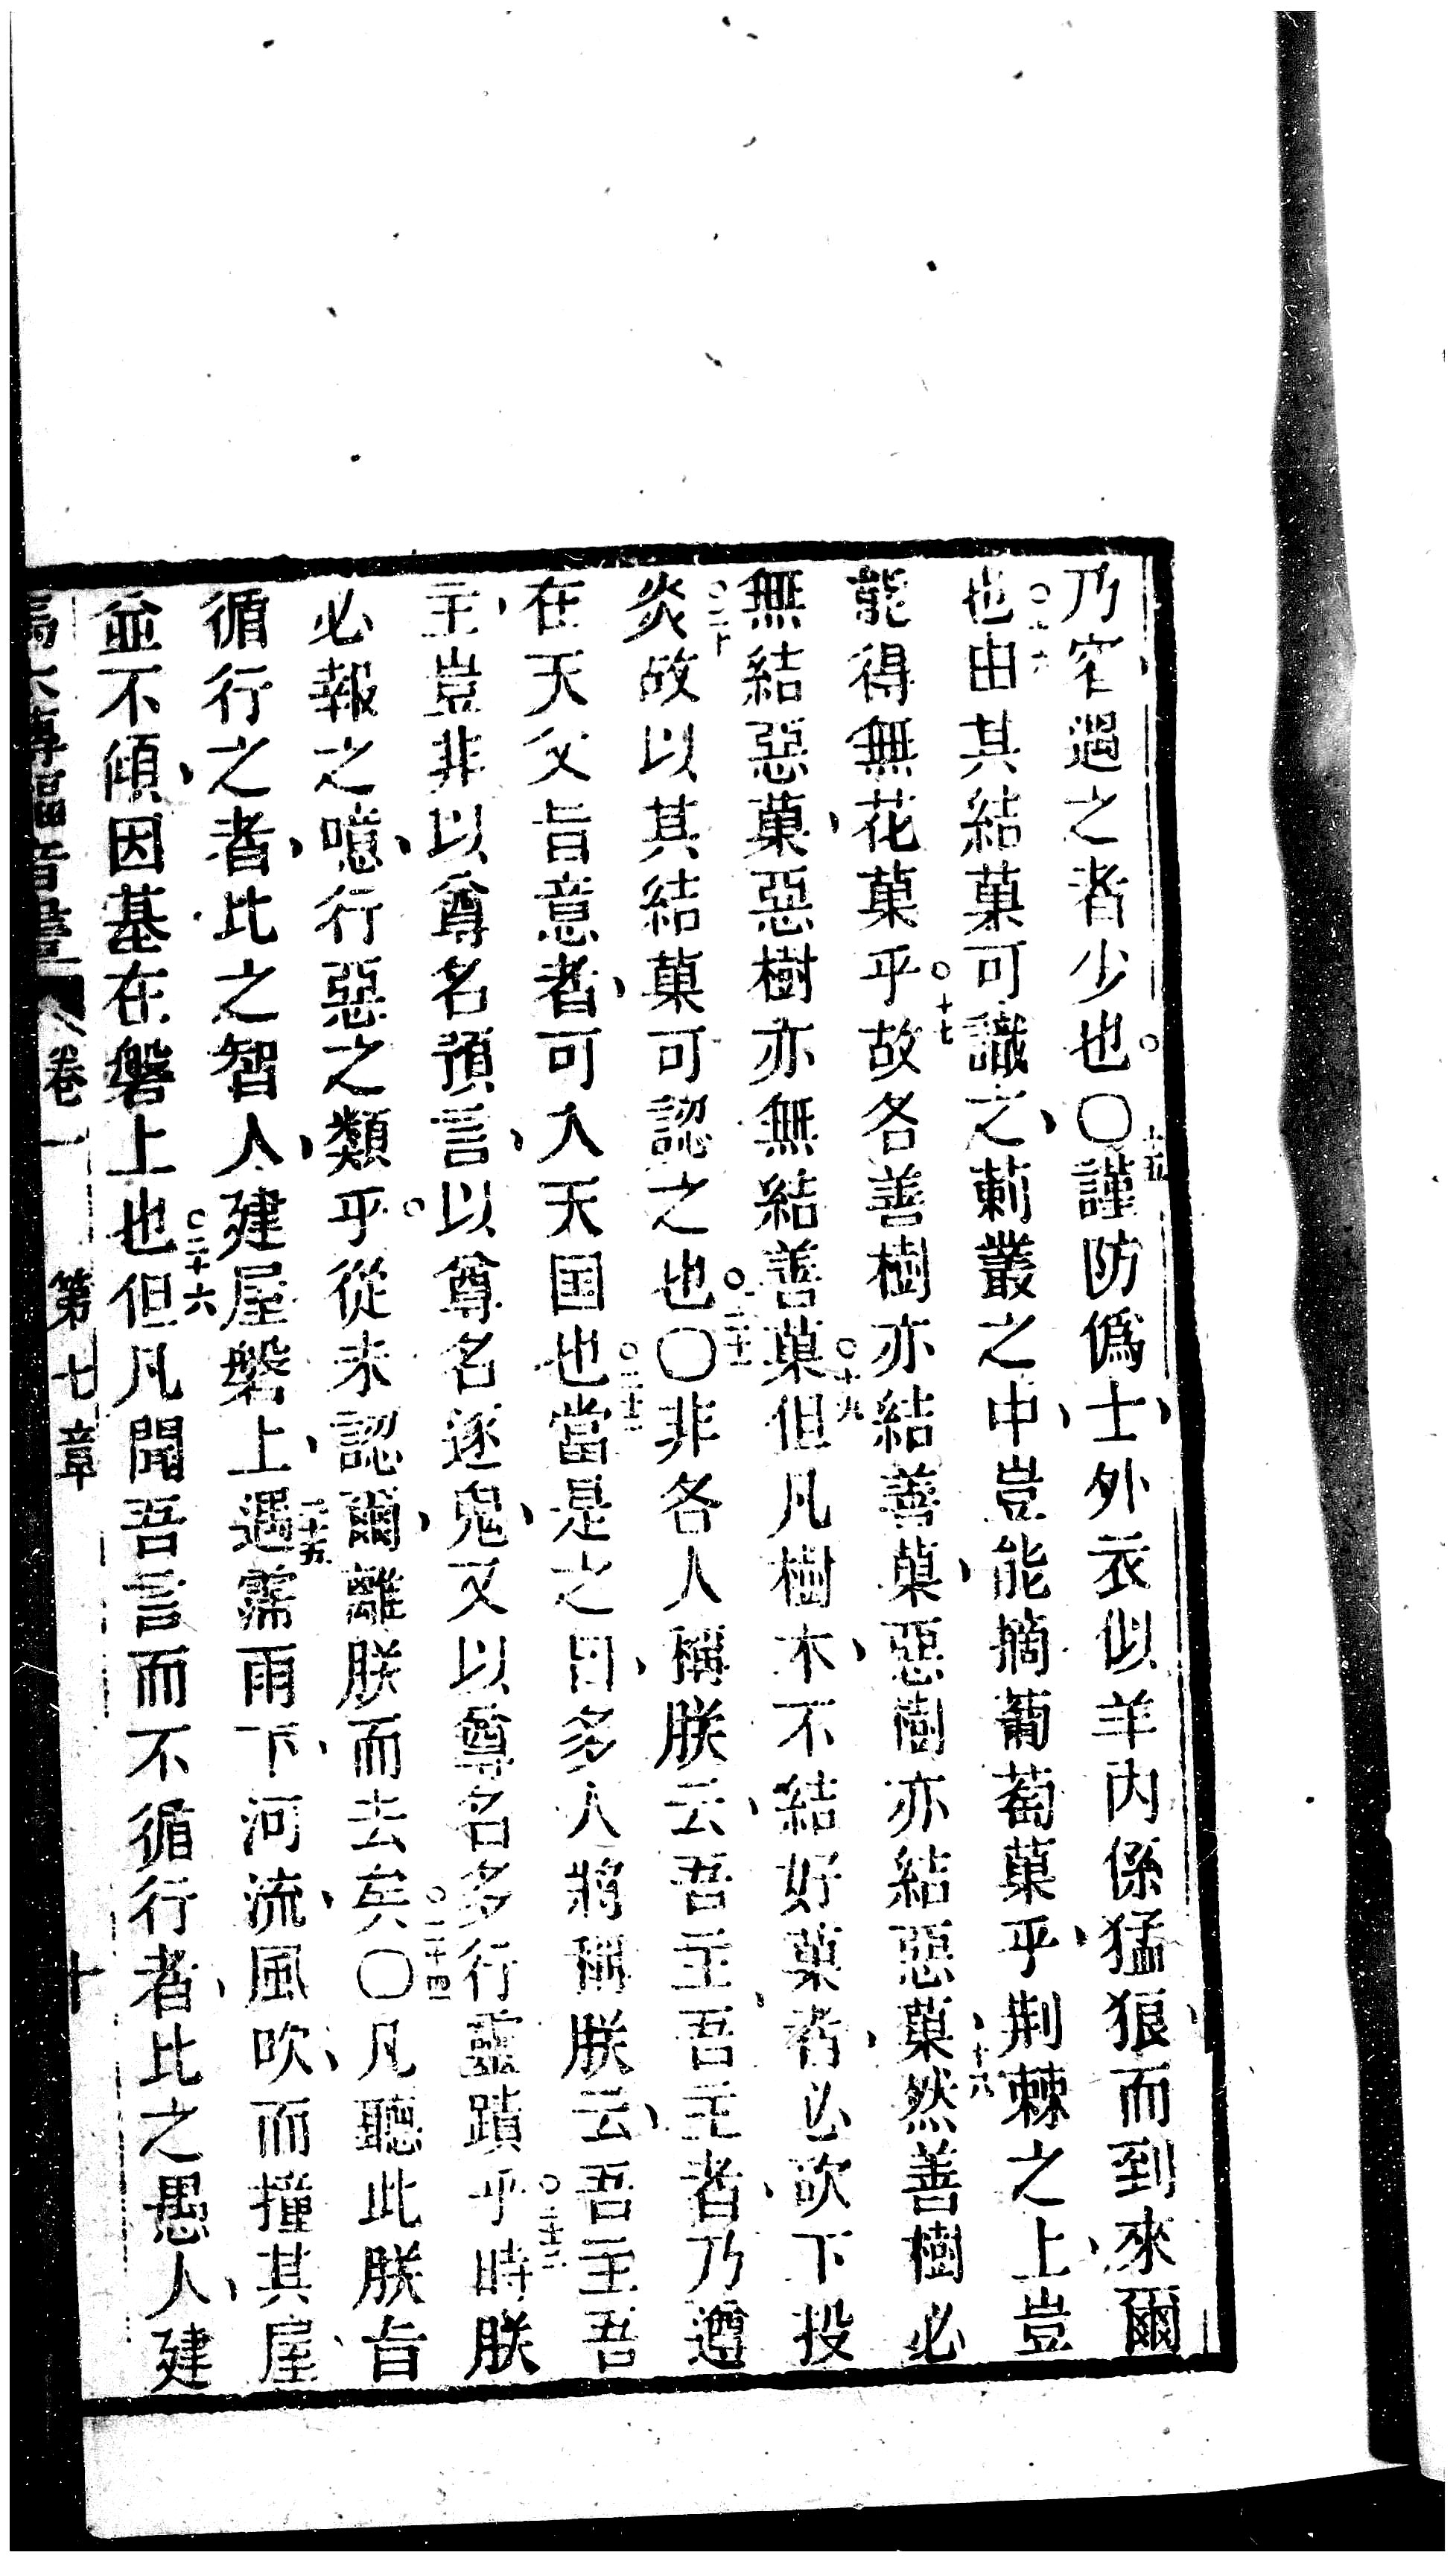 乃窄遇之者少也〇謹防僞士外衣似羊內係猛狼而到來爾
也由其結菓可識之莿叢之中豈能摘葡萄菓乎荆棘之上豈
能得無花菓乎故各善樹亦結善菓惡樹亦結惡菓然善樹必
無結惡菓惡樹亦無結善菓但凡樹木不結好菓者必砍下投
炎故以其結菓可認之也〇非各人稱朕云吾主吾主者乃遵
在天父旨意者可入天国也當是之日多人將稱朕云吾主吾
主豈非以尊名預言以尊名逐鬼又以尊名多行靈蹟乎時朕
必報之噫行惡之類乎從未認爾離朕而去矣〇凡聽此朕旨
循行之者比之智人建屋磐上遇霈雨下河流風吹而撞其屋
並不傾因基在磐上也但凡聞吾言而不循行者比之愚人建
傳福音書 卷一 第七章 十